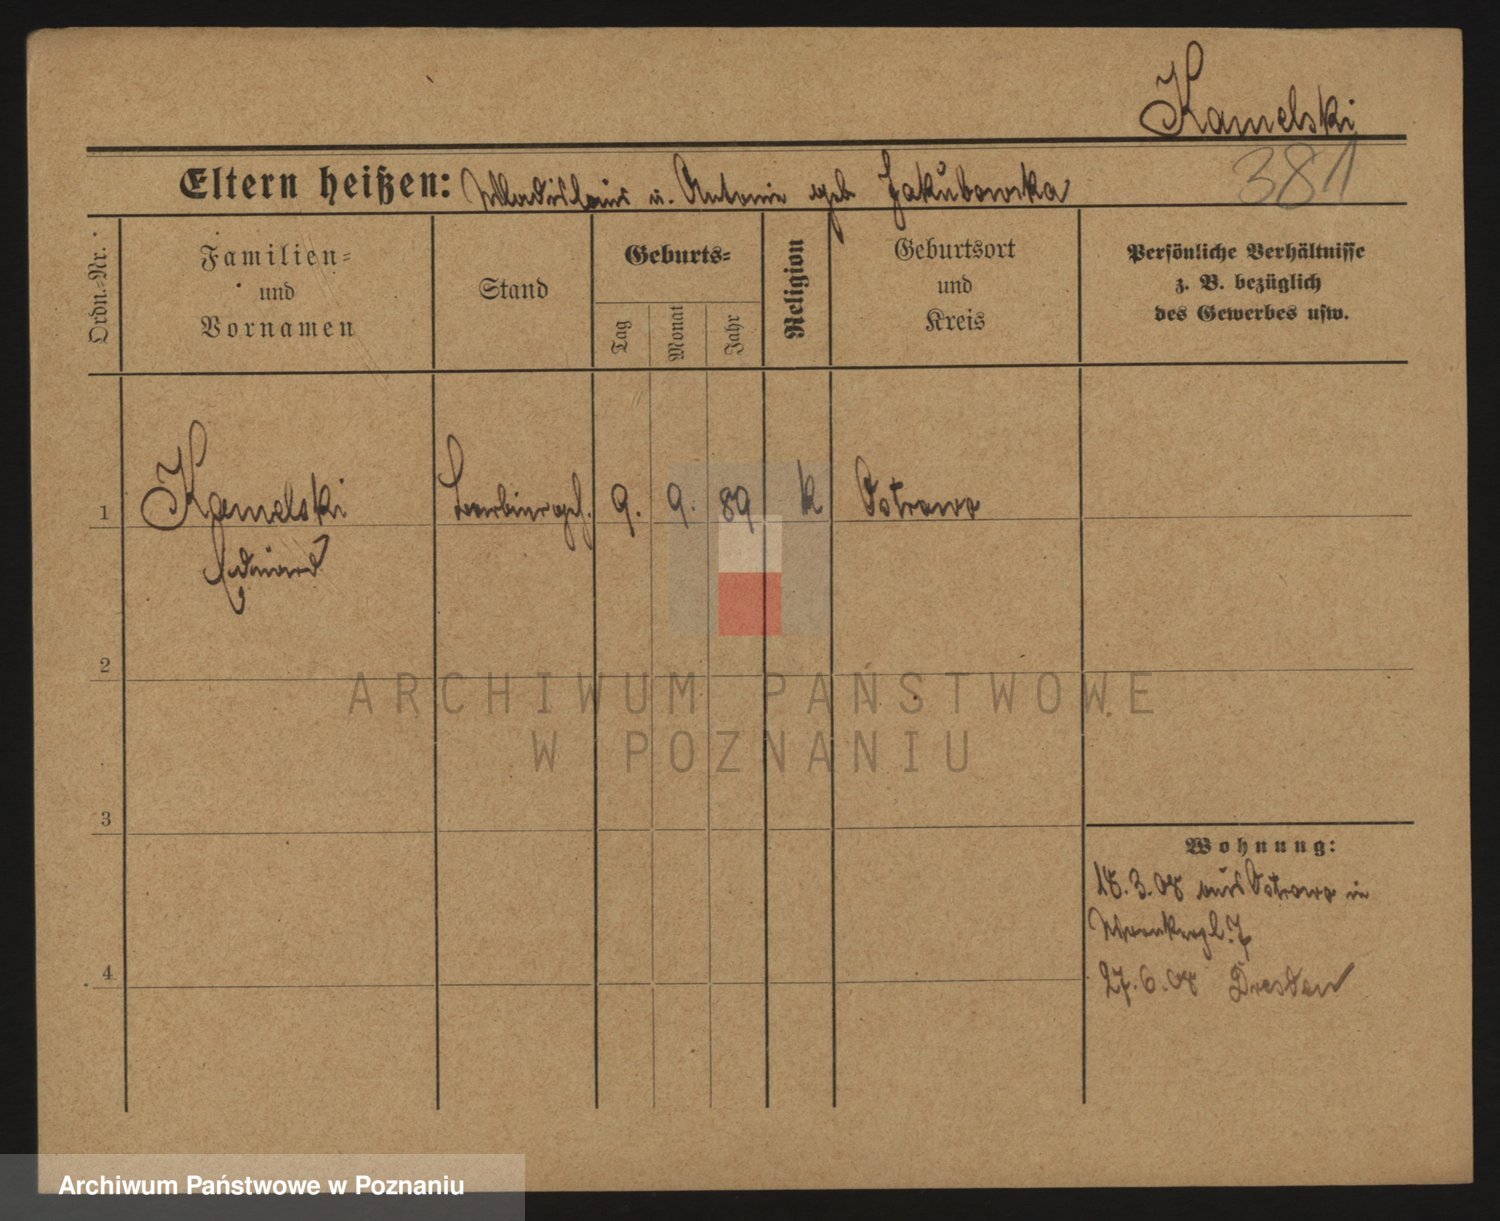 Kamelski
381
Eltern heißen: Wladislaus u. Antonie geb Jakubowska
Ordn.-Nr.
Familien- und Vornamen
Stand
Geburts-
Tag
Monat
Jahr
Religion
Geburtsort und Kreis
Persönliche Verhältnisse
z. B. bezüglich
des Gewerbes usw.
1
Kamelski
Eduard
Barbiergeh.
9.
9.
89
k
Ostrowo
2
ARCHIWUM PAŃSTWOWE
W POZNANIU
3
Wohnung:
18.3.08 aus Ostrowo in
7
4
27.6.08 Dresden
Archiwum Państwowe w Poznaniu